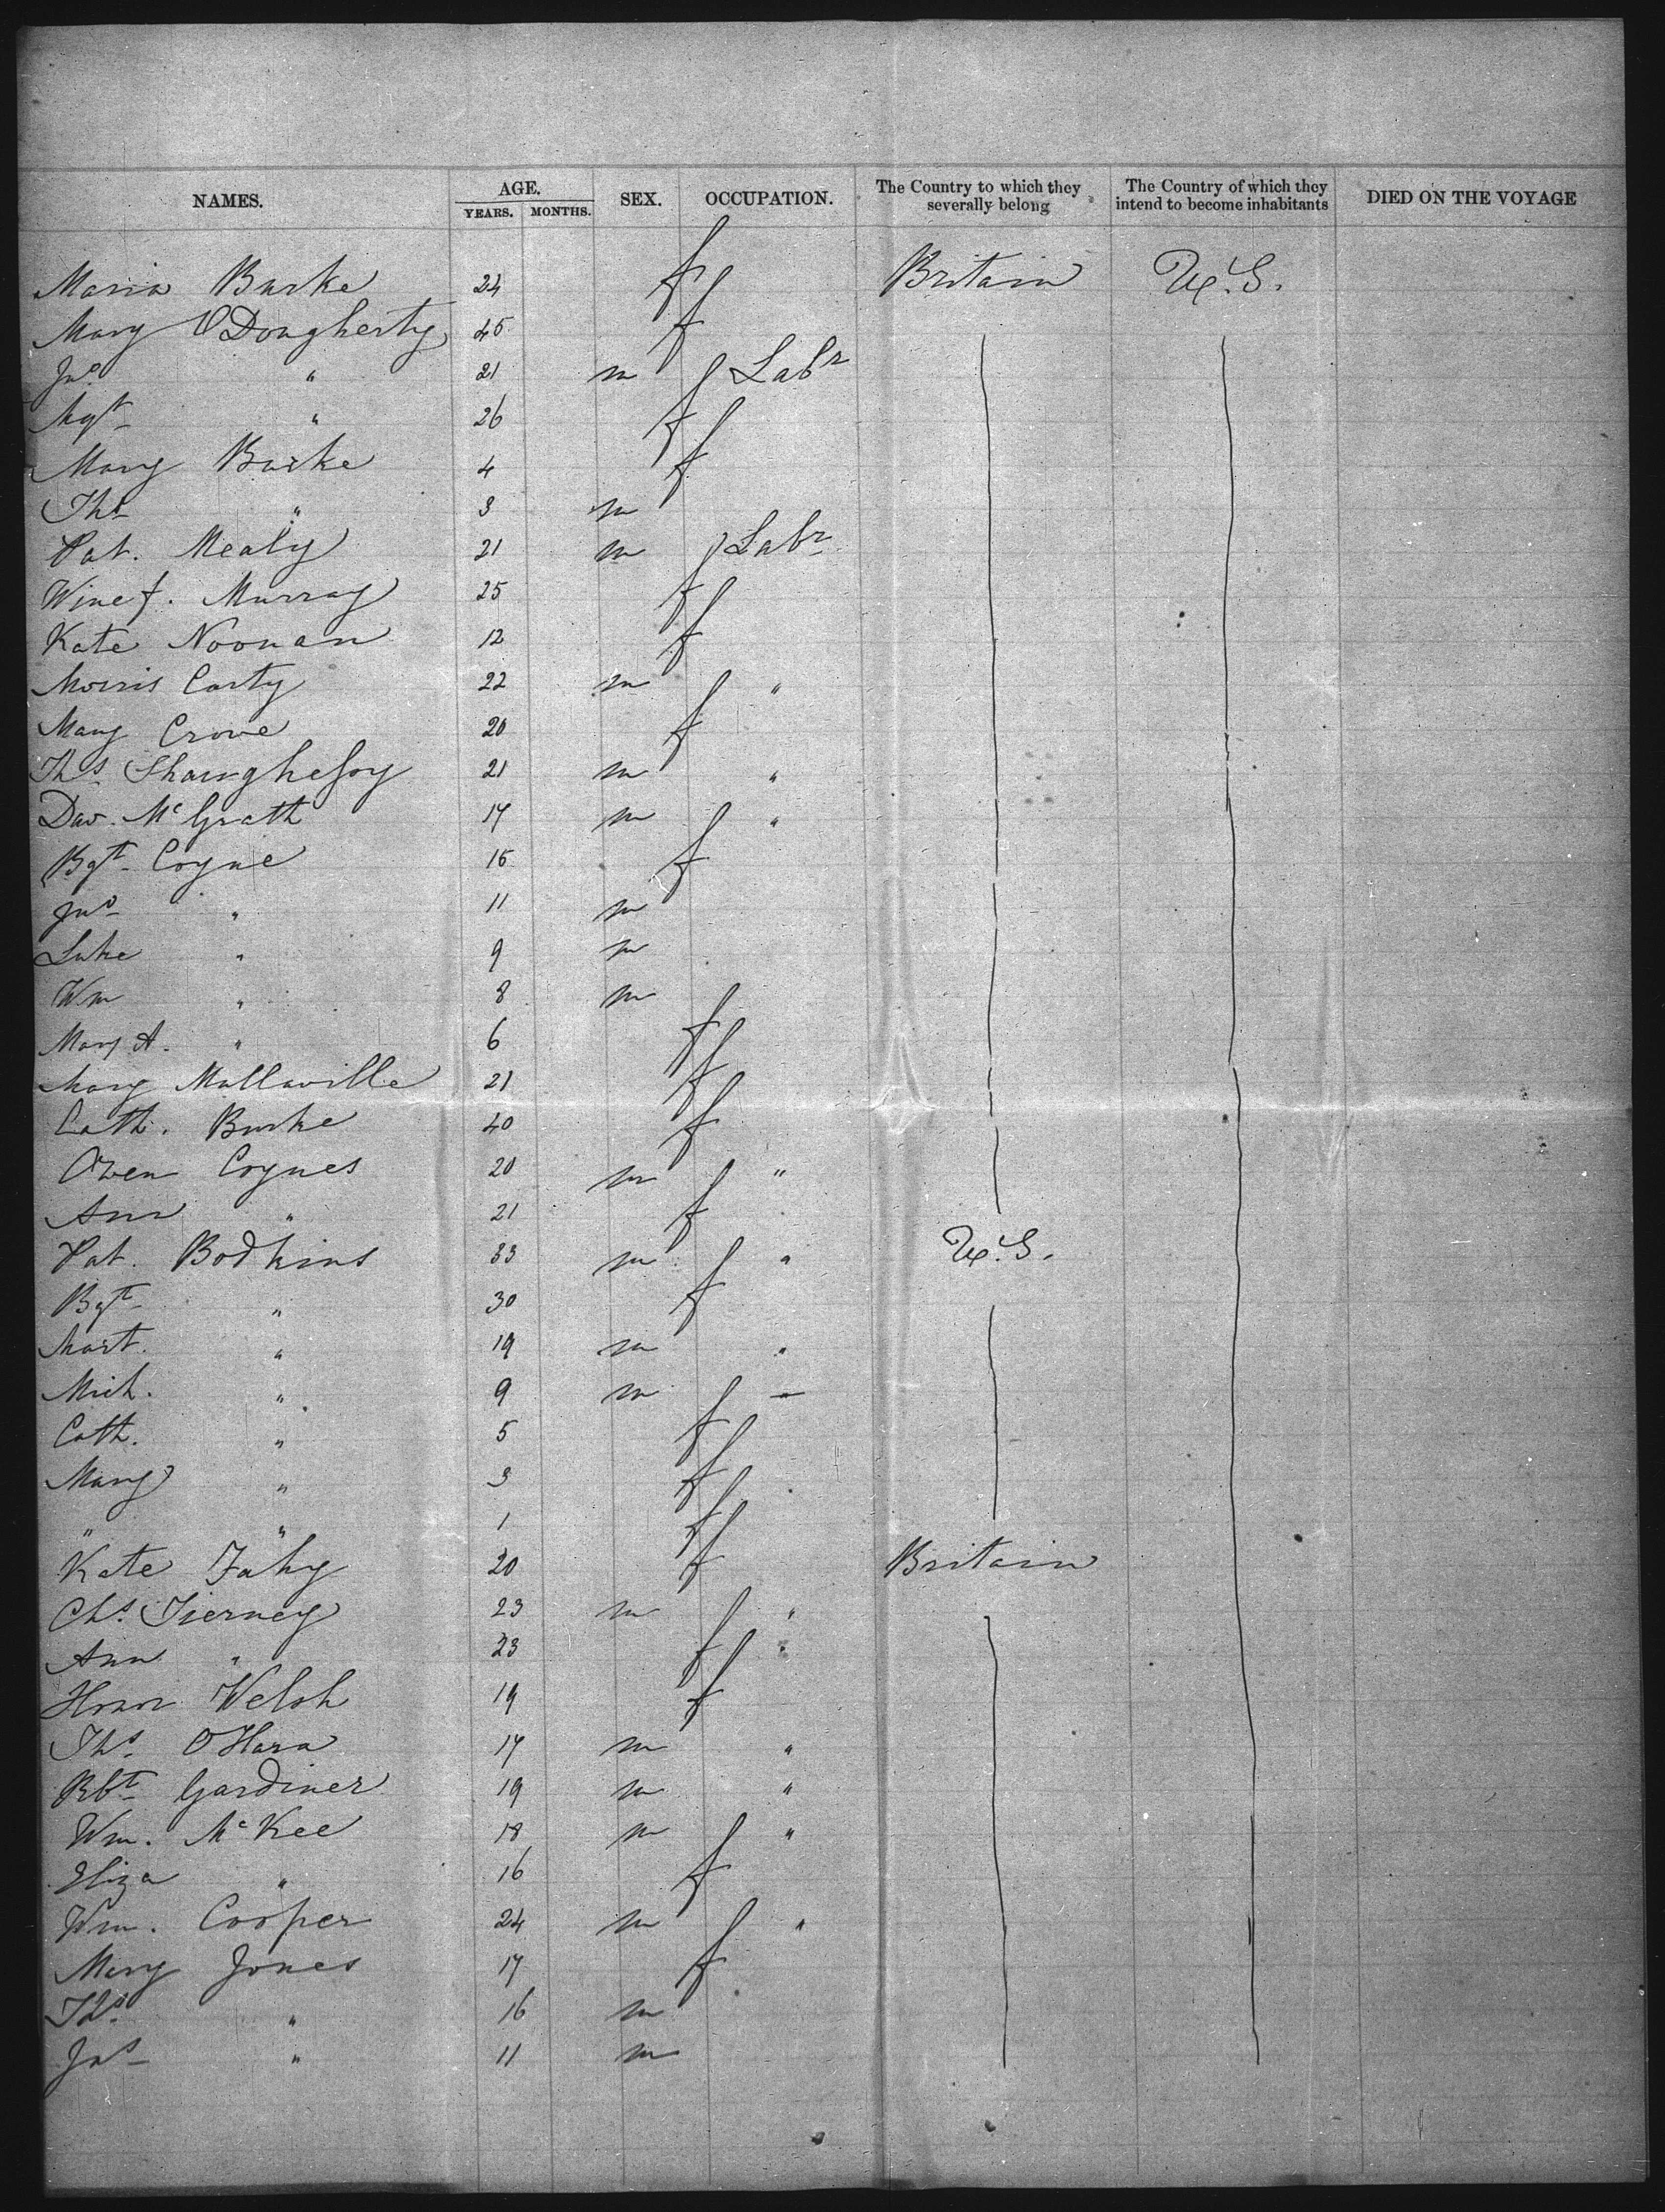 NAMES. AGE. YEARS. MONTHS. SEX. OCCUPATION. The Country to which they severally belong The Country of which they intend to become inhabitants DIED ON THE VOYAGE
Maria Burke 24 f Britain U.S.
Mary O'Dougherty 45 f
Jno " 21 m Labr
Mgt " 26 f
Mary Burke 4 f
Ths " 3 m
Pat. Mealy 21 m Labr
Winef. Murray 25 f
Kate Noonan 12 f
Morris Carty 22 m "
Mary Crowe 20 f
Ths Shaughnessy 21 m "
Dav. McGrath 17 m "
Bgt Coyne 15 f
Jno " 11 m
Luke " 9 m
Wm " 8 m
Mary A. " 6 f
Mary Mullaville 21 f
Cath. Burke 40 f
Owen Coynes 20 m "
Ann " 21 f
Pat. Bodkins 33 m " U.S.
Bgt " 30 f
Mart. " 19 m "
Mich. " 9 m —
Cath. " 5 f
Mary " 3 f
" " 1 f
Kate Fahy 20 f Britain
Chs. Tierney 23 m "
Ann " 23 f "
Honor Welsh 19 f
Ths. O'Hara 17 m "
Rbt Gardiner 19 m "
Wm. McKee 18 m "
Eliza " 16 f
Wm. Cooper 24 m "
Mary Jones 17 f
Ths. " 16 m
Jas " 11 m